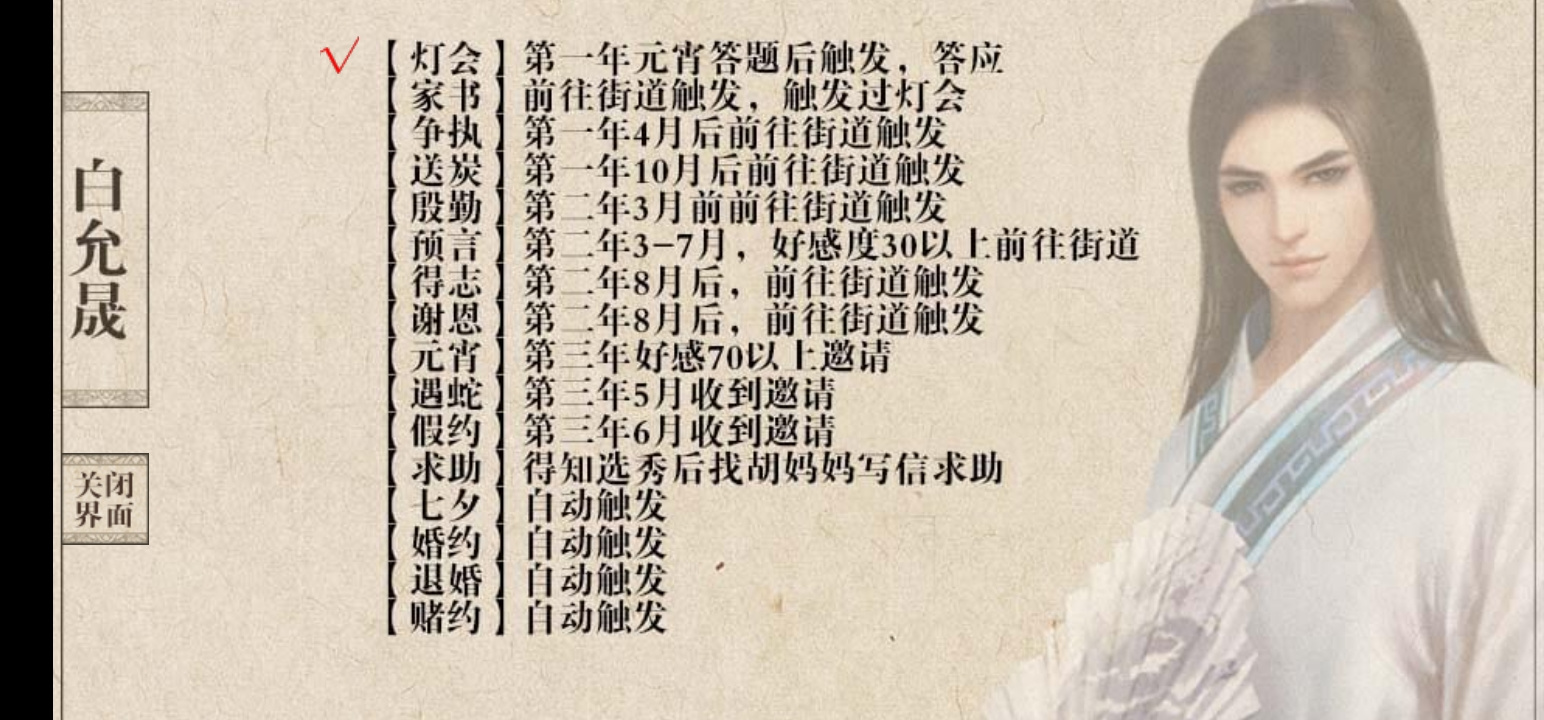 白允晟
关闭界面
√【灯会】第一年元宵答题后触发，答应
【家书】前往街道触发，触发过灯会
【争执】第一年4月后前往街道触发
【送炭】第一年10月后前往街道触发
【殷勤】第二年3月前前往街道触发
【预言】第二年3-7月，好感度30以上前往街道
【得志】第二年8月后，前往街道触发
【谢恩】第二年8月后，前往街道触发
【元宵】第三年好感70以上邀请
【遇蛇】第三年5月收到邀请
【假约】第三年6月收到邀请
【求助】得知选秀后找胡妈妈写信求助
【七夕】自动触发
【婚约】自动触发
【退婚】自动触发
【赌约】自动触发